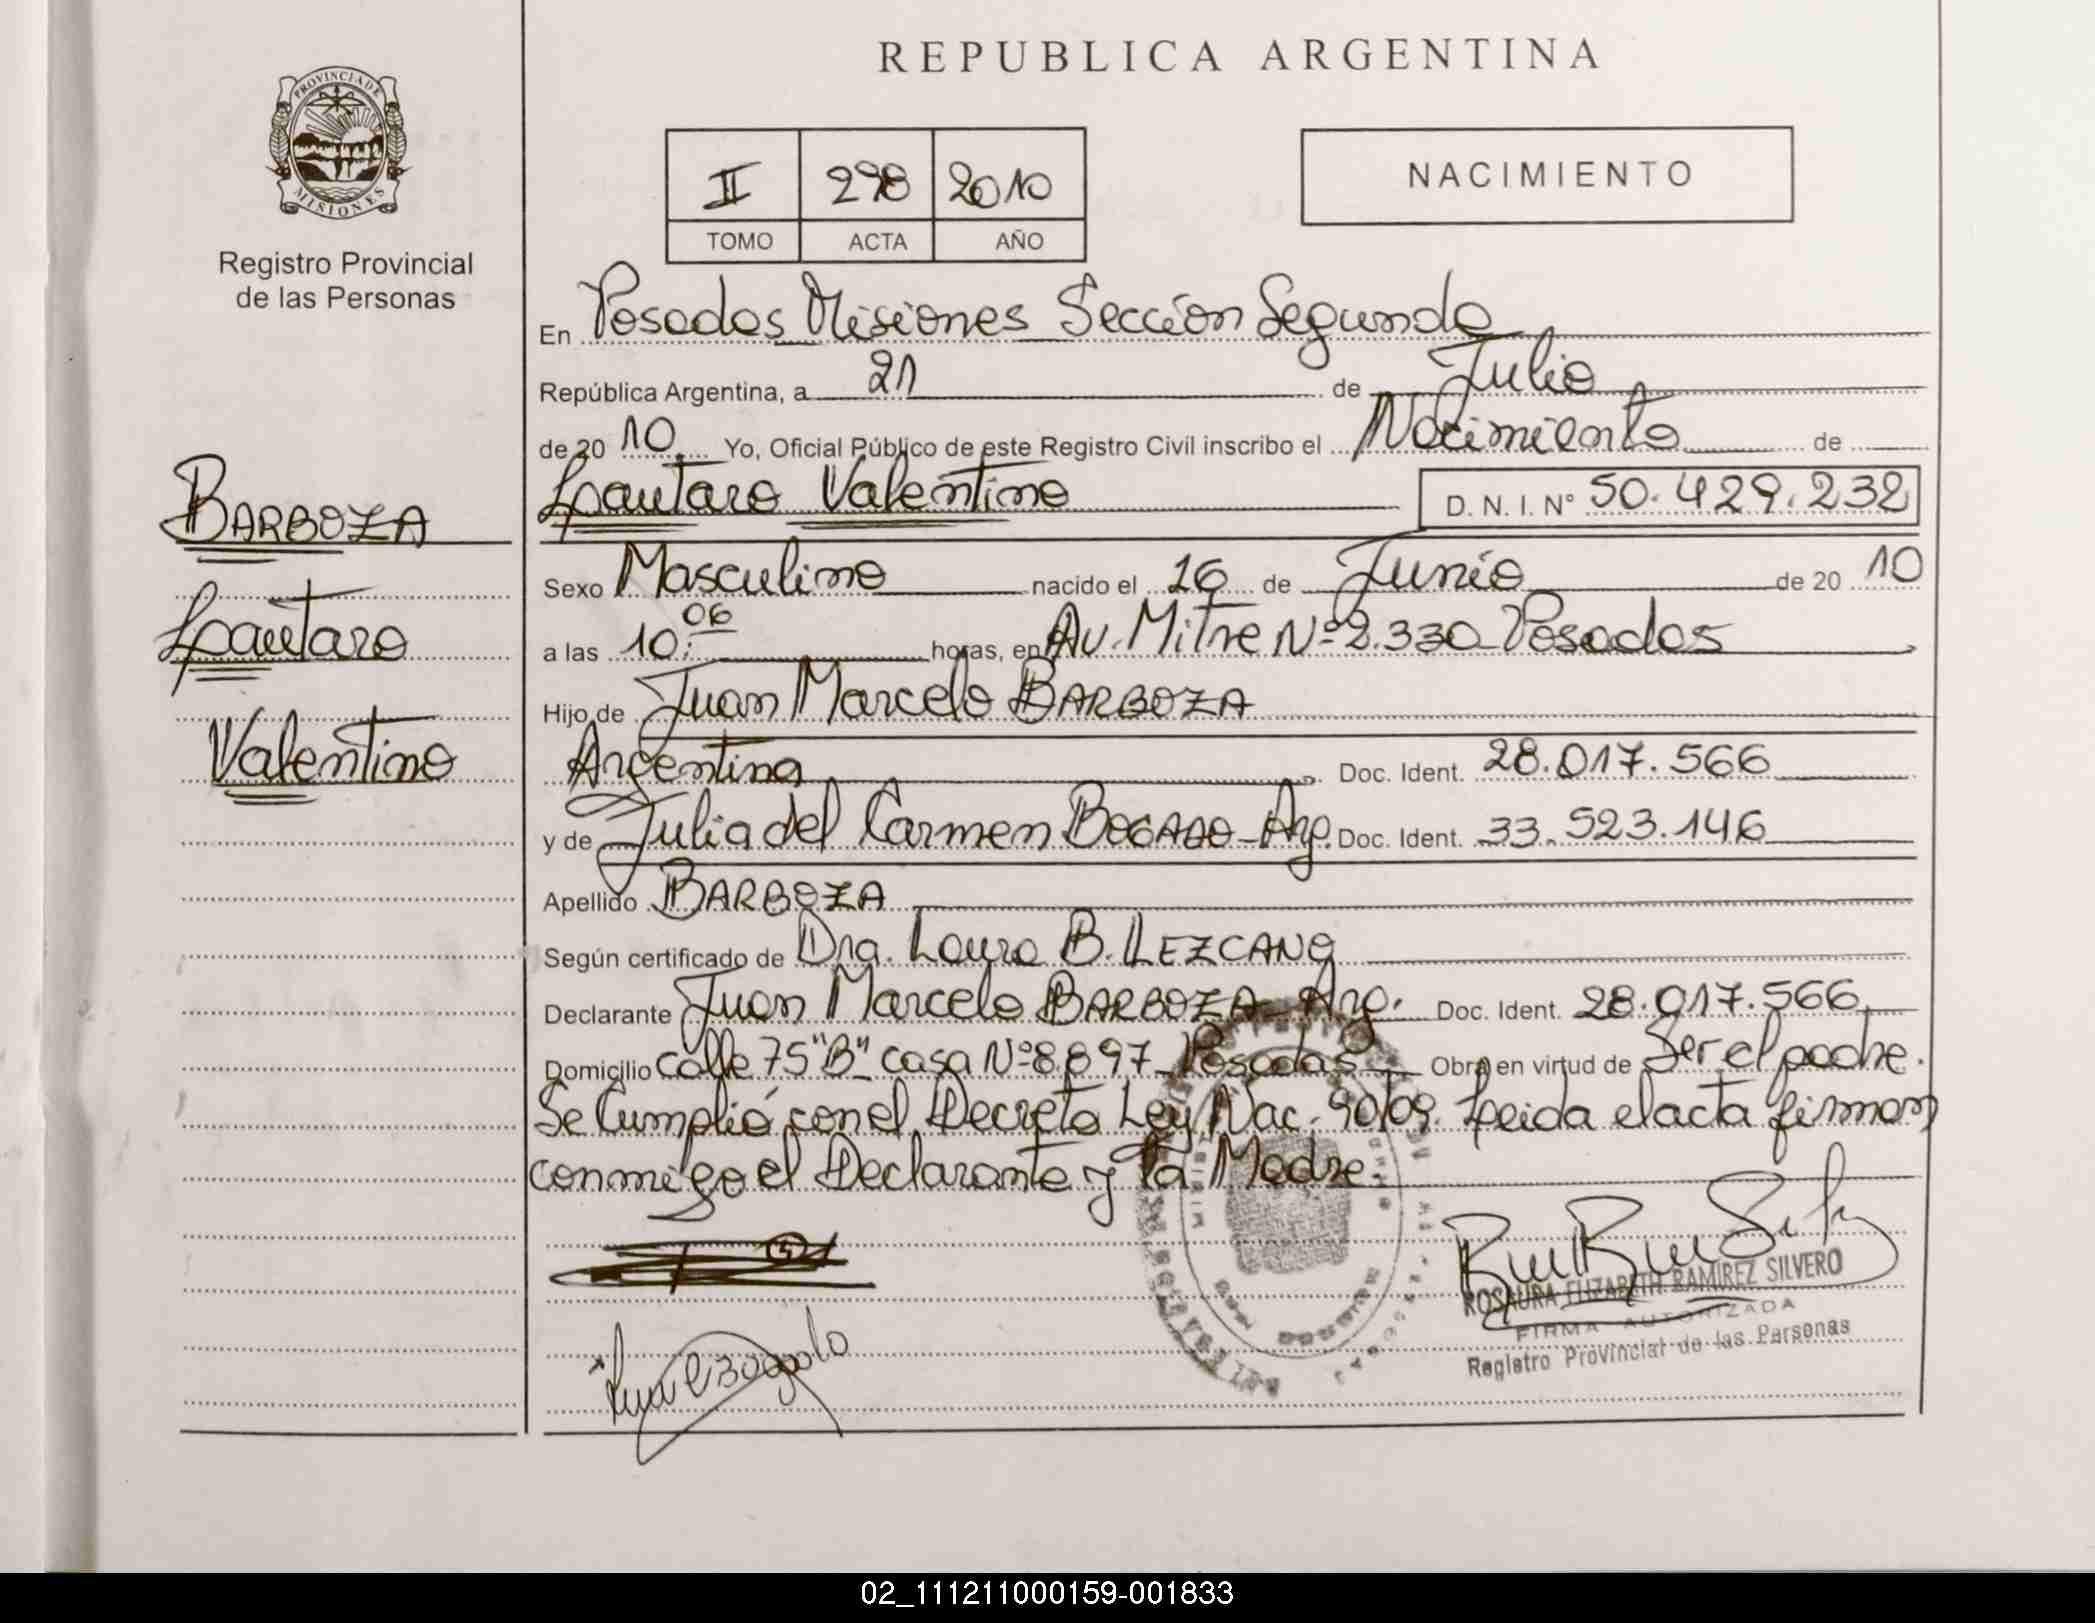 REPUBLICA ARGENTINA
PROVINCIA DE
MISIONES
Registro Provincial
de las Personas
II 298 2010
TOMO ACTA AÑO
NACIMIENTO
En Posadas Misiones Sección Segunda
República Argentina, a 21 de Julio
de 20 10 Yo, Oficial Público de este Registro Civil inscribo el Nacimiento de
Lautaro Valentino D. N. I. N° 50.429.232
BARBOZA
Lautaro
Valentino
Sexo Masculino nacido el 16 de Junio de 20 10
a las 10:06 horas, en Av. Mitre Nº 2.330 Posadas
Hijo de Juan Marcelo BARBOZA
Argentina Doc. Ident. 28.017.566
y de Julia del Carmen BOGADO - Arg. Doc. Ident. 33.523.146
Apellido BARBOZA
Según certificado de Dra. Laura B. LEZCANO
Declarante Juan Marcelo BARBOZA - Arg. Doc. Ident. 28.017.566
Domicilio calle 75 "B" casa Nº 8.897 Posadas Obra en virtud de Ser el padre.
Se Cumplió con el Decreto Ley Nac. 90/09. Leida el acta firman
conmigo el Declarante y la Madre.
ROSAURA ELIZABETH RAMIREZ SILVERO
FIRMA AUTORIZADA
Registro Provincial de las Personas
02_111211000159-001833